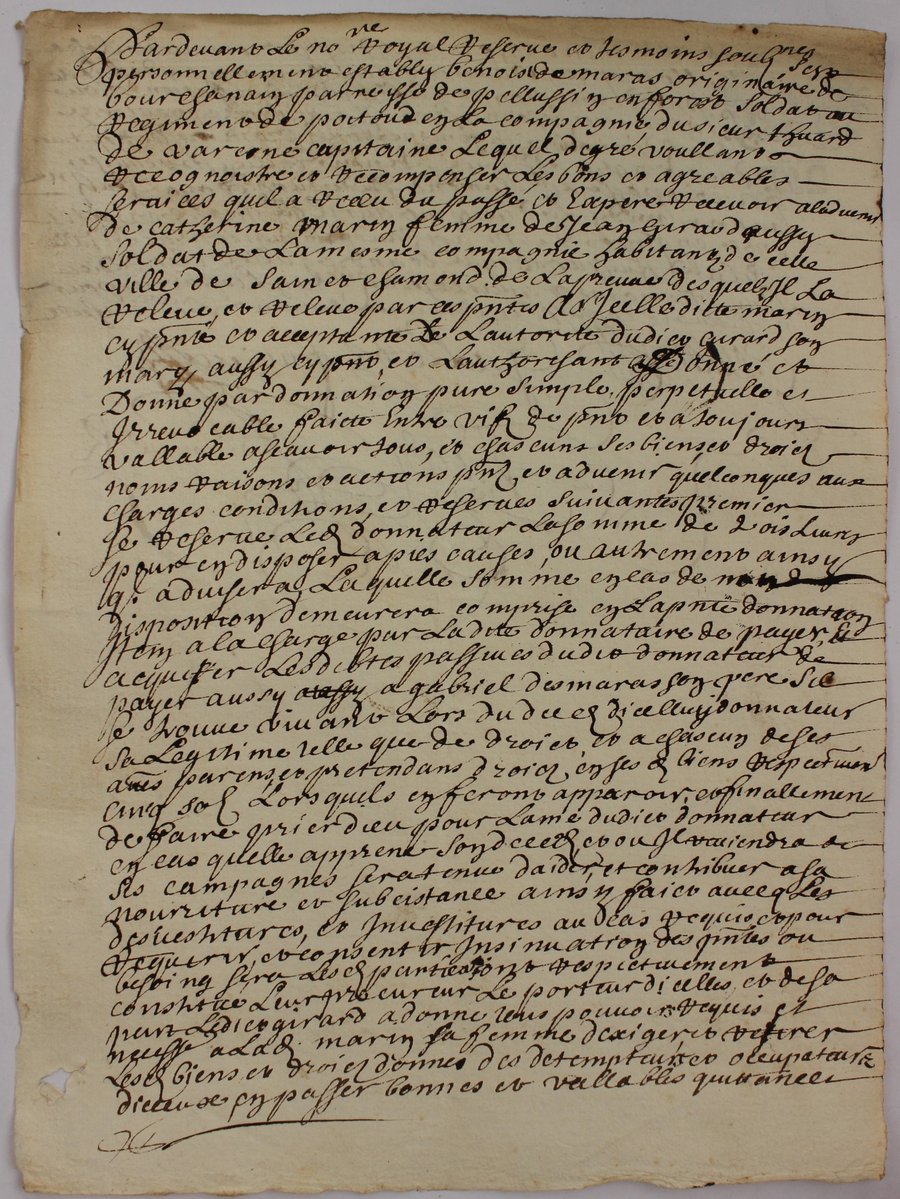 Pardevant Le no.re Royal Reservé et tesmoins soubz.nes
personnellement estably benoist de maras originaire de
bourchanain parroisse de pellussin en forest soldat au
Regiment de poictou en La compagnie du sieur thuard
de varenne capitaine Lequel de gré voullant
Recognoistre et Recompenser Les bons et agreables
services quil a Receu du passé et Espere Recevoir a ladvenir
de catherine marin femme de Jean Girard aussy
soldat de La mesme compagnie habitans de celle
ville de Sainct chamond de La preuve desquels Il La
Releve, et Releve par ces p.ntes A Icelle dicte marin
cy p.nte et acceptante de Lautorité dudict Girard son
mary aussy cy p.nt, et Lauthorisant a Donné et
Donne par donnation pure simple, perpetuelle et
Irrevocable faicte Entre vifz de p.nt et a toujours
vallable ascavoir tous, et chascuns ses biens et droictz
noms Raisons et actions p.ntz et advenir quelconques aux
charges conditions, et Reserves suivantes premier
se Reserve Led. donnateur La somme de Livres
pour en disposer a pies causes, ou autrement ainsy
q. advisera, Laquelle somme en cas de non
disposition demeurera comprise en La p.nte donnation
Item a la charge par Ladite donnataire de payer, et
acquitter Les debtes passives dudict donnateur de
payer aussy a gabriel desmaras son pere sil
se trouve vivant Lors du deced dicelluy donnateur
sa Legitime telle que de droict, et a chascun de ses
aues parens, et pretendans droictz, en ses d. biens Respectivement
cinq solz Lorsquels en feront apparoir, et finallement
de faire prier dieu pour Lame dudict donnateur
en cas quelle apprene son deced, et ou Il Reviendra de
ses campagnes sera tenue daider, et contribuer a sa
nourriture et subcistance ainsy faict avecq Les
desvestitures, et Investitures au cas Requis et pour
Requerir, et consentir Insinuation des p.ntes ou
besoing sera Lesd. parties ont Respectivement
constitué Leur procureur Le porteur dicelles, et de sa
part Ledict girard a donné tous pouvoir Requis et
necesse a Lad. marin sa femme dexiger et Retirer
Lesd. biens et droictz donnés des detempteurs et occupateurs
diceux en passer bonnes et vallables quittances